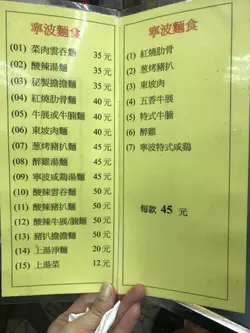 寧波麵食
(01) 菜肉雲吞麵 35 元
(02) 酸辣湯麵 35 元
(03) 秘製擔擔麵 35 元
(04) 紅燒肋骨麵 40 元
(05) 牛展或牛腩麵 40 元
(06) 東坡肉麵 40 元
(07) 葱烤豬扒麵 45 元
(08) 醉雞湯麵 45 元
(09) 寧波咸鷄湯麵 50 元
(10) 酸辣雲吞麵 50 元
(11) 酸辣豬扒麵 50 元
(12) 酸辣牛展/腩麵 50 元
(13) 豬扒擔擔麵 50 元
(14) 上湯淨麵 20 元
(15) 上湯菜 12 元
寧波麵食
(1) 紅燒肋骨
(2) 葱烤豬扒
(3) 東坡肉
(4) 五香牛展
(5) 特式牛腩
(6) 醉雞
(7) 寧波特式咸鷄
每款 45 元